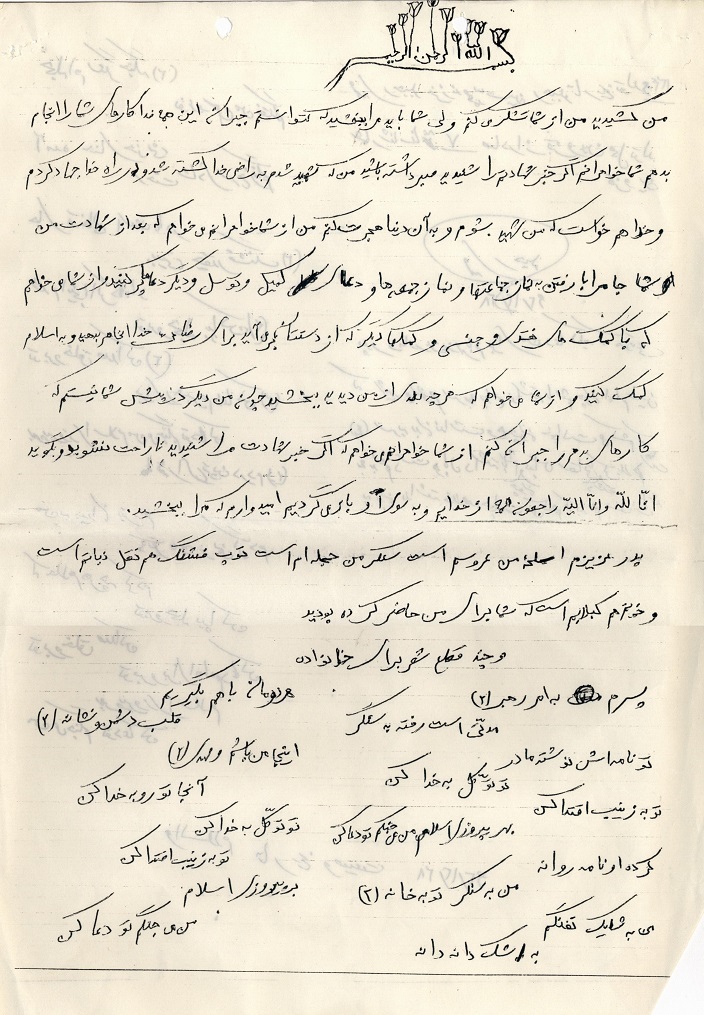 بسم الله الرحمن الرحیم
من کشیدید من از شما تشکر می کنم ولی شما باید مرا ببخشید که نتوانستم جبران این همه کارهای شما را انجام
بدهم شما خواهرانم اگر خبر شهادتم را شنیدید صبر داشته باشید من که شهید شدم به راه خدا کشته شدم و در راه خدا جهاد کردم
و خدا هم خواست که من شهید بشوم و به آن دنیا هجرت کنم من از شما خواهرانم می خواهم که بعد از شهادت من
شما جا مرا با رفتن به نماز جماعتها و نماز جمعه ها و دعای کمیل و توسل و دیگر دعاها پر کنید و از شما می خواهم
که با کمک های نقدی و جنسی و کمکهای دیگر که از دستتان بر می آید برای رضایت خدا انجام بدهید و به اسلام
کمک کنید و از شما می خواهم که هر چه بدی از من دیدید ببخشید چون من دیگر در پیش شما نیستم که
کارهای بدم را جبران کنم از شما خواهرانم می خواهم که اگر خبر شهادت مرا شنیدید ناراحت نشوید و بگوید
انّا للّه وانّا الیه راجعون از خدایم و به سوی او باز می گردیم امیدوارم که مرا ببخشید.
پدر عزیزم اسلحه من عروسم است سنگر من حجله ام است توپ فشنگ هم نقل نباتم است
و خونم گلابم است که شما برای من حاضر کرده بودید
و چند قطع شعر برای خانواده
پسرم به امر رهبر (۲) هردومان با هم بگیریم
مدتی است رفته به سنگر قلب دشمن و نشانه (۲)
تو نامه اش نوشته مادر اینجا من باشم و مهدی (۲)
تو توکّل به خدا کن آنجا تو رو به خدا کن
تو به زینب اقتدا کن تو توکّل به خدا کن
بهر پیروزی اسلام من می جنگم تو دعا کن تو به زینب اقتدا کن
کرده او نامه روانه بهر پیروزی اسلام
من به سنگر تو به خانه (۲) من می جنگم تو دعا کن
می به شلیک تفنگم
به اشک دانه دانه